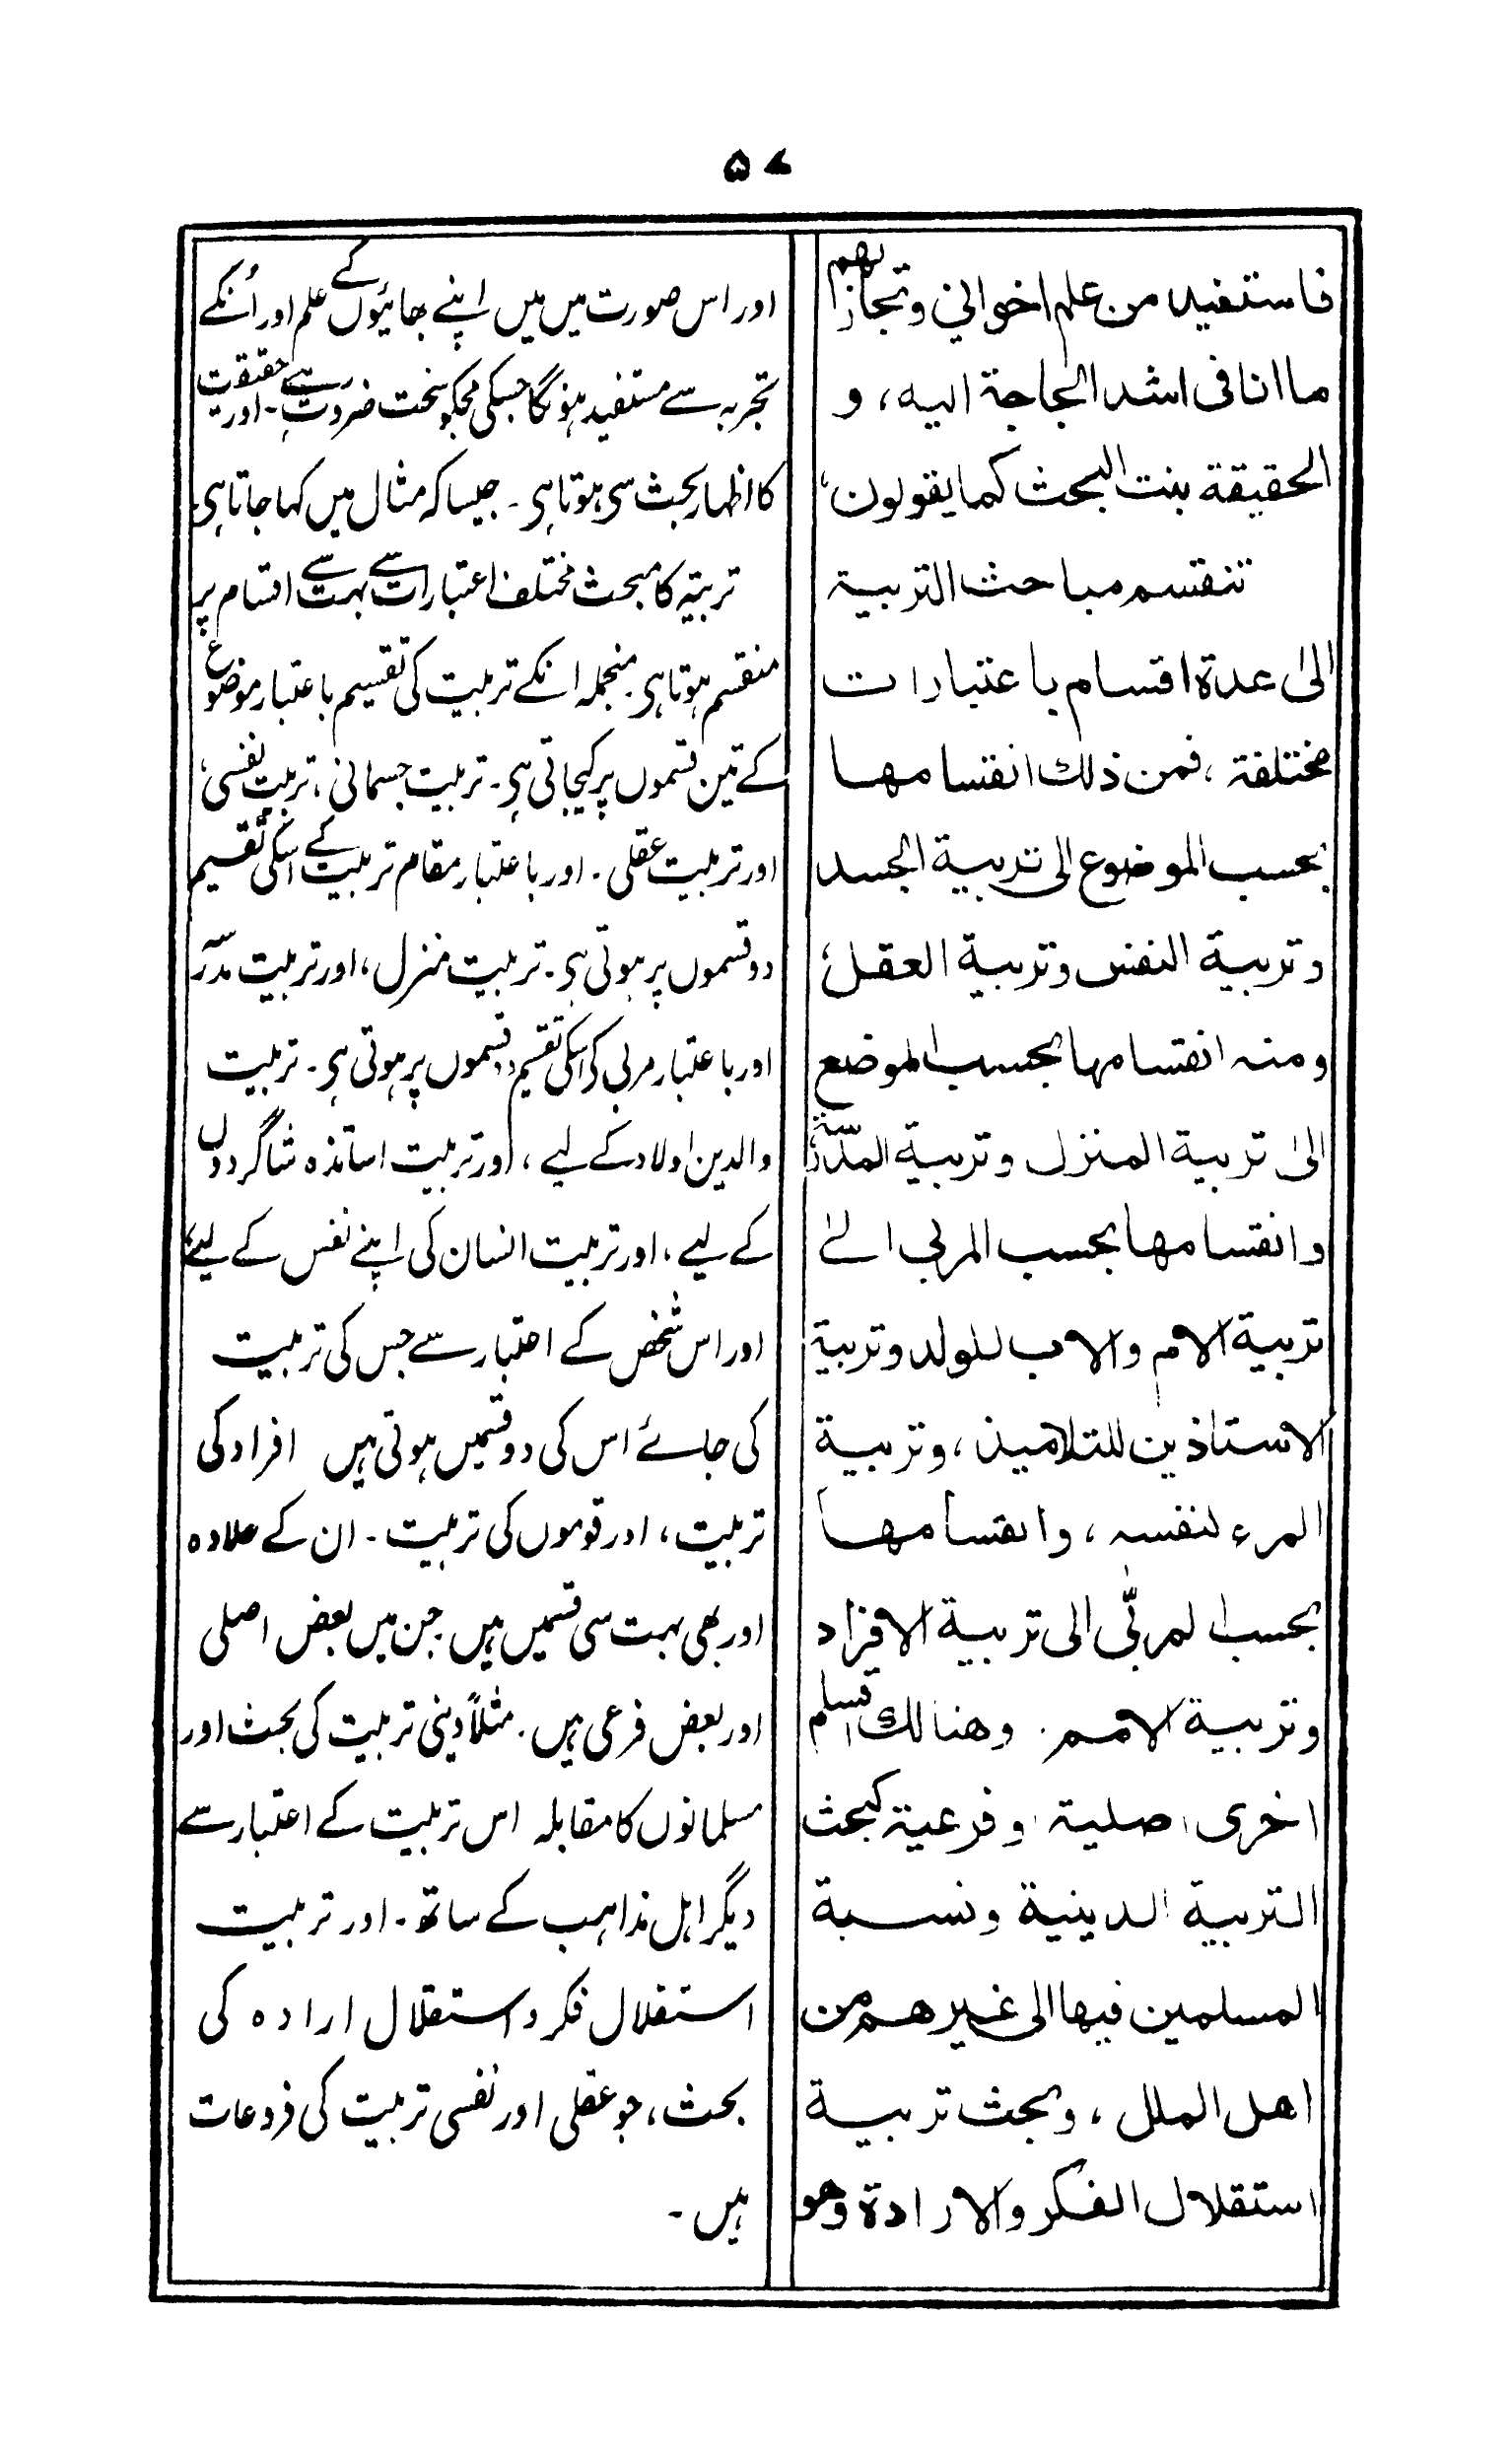 ۵۷
فاستفيد من علم اخواني وتجاربهم
ما انا فى اشد الحاجة اليه، و
الحقيقة بنت البحث كما يقولون،
تنقسم مباحث التربية
الىٰ عدة اقسام باعتبارات
مختلفة، فمن ذلك انقسامها
بحسب الموضوع الى تربية الجسد
وتربية النفس وتربية العقل،
ومنه انقسامها بحسب الموضع
الىٰ تربية المنزل وتربية المدرسة،
وانقسامها بحسب المربي الىٰ
تربية الام والاب للولد وتربية
الاستاذين للتلاميذ، وتربية
المرء لنفسه، وانقسامها
بحسب المربّى الى تربية الافراد
وتربية الامم. وهنالك اقسام
اخرى اصلية وفرعية كبحث
التربية الدينية ونسبة
المسلمين فيها الى غيرهم من
اهل الملل، وبحث تربية
استقلال الفكر والارادة وهو
اور اس صورت میں میں اپنے بھائیوں کے علم اور اُنکے
تجربہ سے مستفید ہونگا جسکی مجکو سخت ضرورت ہے۔ اور حقیقت
کا اظہار بحث سی ہوتا ہی۔ جیسا کہ مثال میں کہا جاتا ہی
تربیۃ کا مبحث مختلف اعتبارات سے بہت سے اقسام پر
منقسم ہوتا ہی۔ منجملہ انکے تربیت کی تقسیم باعتبار موضوع
کے تین قسموں پر کیجاتی ہی۔ تربیت جسمانی، تربیت نفسی،
اور تربیت عقلی۔ اور باعتبار مقام تربیت کے اسکی تقسیم
دو قسموں پر ہوتی ہی۔ تربیت منزل، اور تربیت مدرسہ
اور باعتبار مربی کے اسکی تقسیم دو قسموں پر ہوتی ہی۔ تربیت
والدین اولاد کے لیے، اور تربیت اساتذہ شاگردوں
کے لیے، اور تربیت انسان کی اپنے نفس کے لیے،
اور اس شخص کے اعتبار سے جس کی تربیت
کی جائے اس کی دو قسمیں ہوتی ہیں افراد کی
تربیت، اور قوموں کی تربیت۔ ان کے علاوہ
اور بھی بہت سی قسمیں ہیں جن میں بعض اصلی
اور بعض فرعی ہیں۔ مثلاً دینی تربیت کی بحث اور
مسلمانوں کا مقابلہ اس تربیت کے اعتبار سے
دیگر اہل مذاہب کے ساتھ۔ اور تربیت
استقلال فکر و استقلال ارادہ کی
بحث، جو عقلی اور نفسی تربیت کی فروعات
ہیں۔